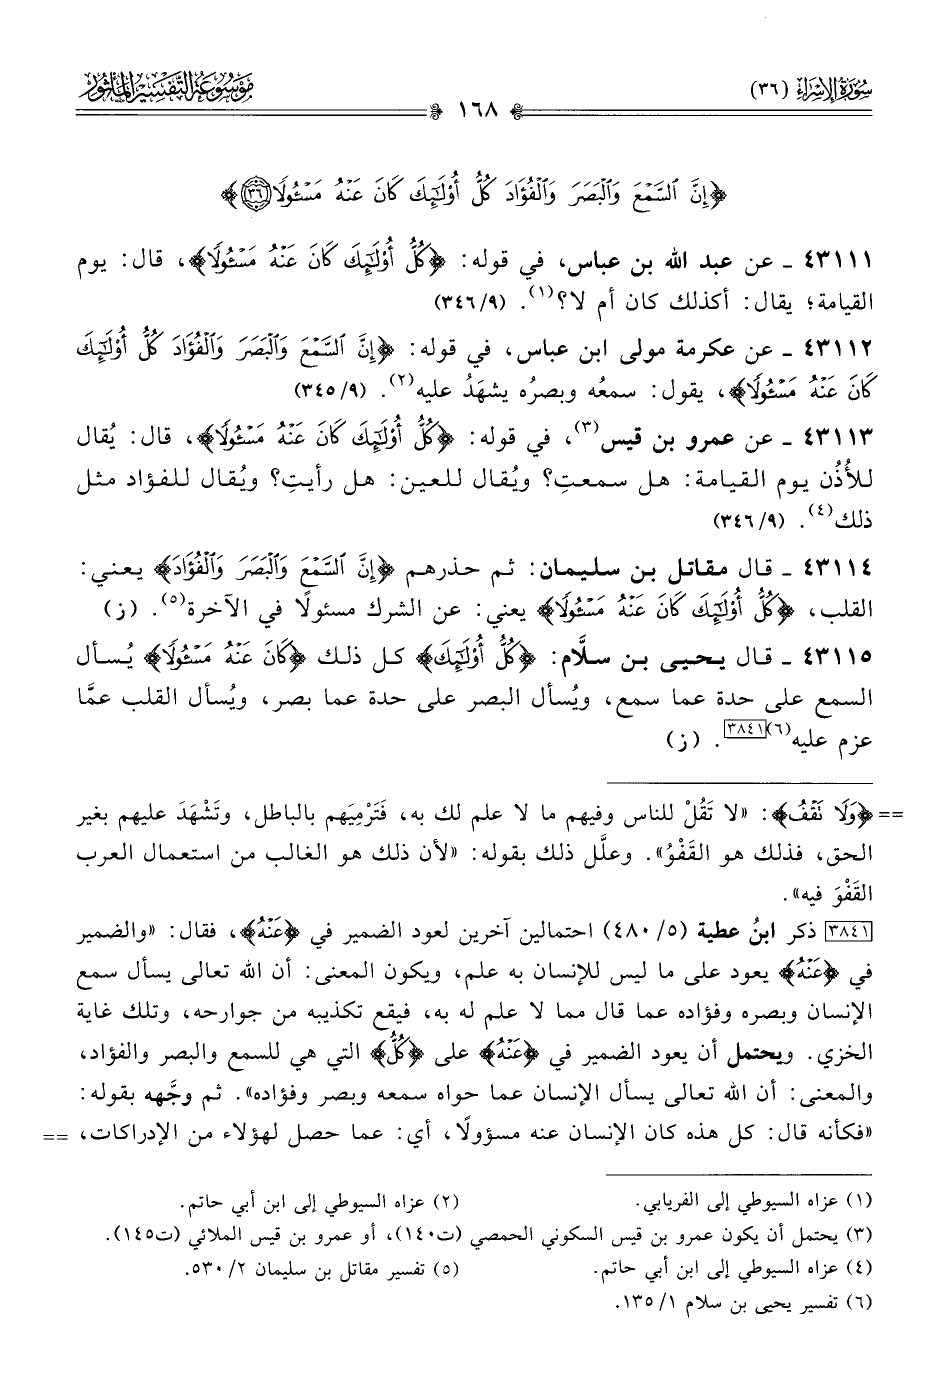 سُورَةُ الإِسْرَاء (٣٦)
١٦٨
مَوْسُوعَةُ التَّفْسِيرِ المَأْثُورِ
﴿إِنَّ ٱلسَّمْعَ وَٱلْبَصَرَ وَٱلْفُؤَادَ كُلُّ أُوْلَٰٓئِكَ كَانَ عَنْهُ مَسْـُٔولًا ٣٦﴾
٤٣١١١ ـ عن عبد الله بن عباس، في قوله: ﴿كُلُّ أُوْلَٰٓئِكَ كَانَ عَنْهُ مَسْـُٔولًا﴾، قال: يوم
القيامة؛ يقال: أكذلك كان أم لا؟(١). (٩/ ٣٤٦)
٤٣١١٢ ـ عن عكرمة مولى ابن عباس، في قوله: ﴿إِنَّ ٱلسَّمْعَ وَٱلْبَصَرَ وَٱلْفُؤَادَ كُلُّ أُوْلَٰٓئِكَ
كَانَ عَنْهُ مَسْـُٔولًا﴾، يقول: سمعُه وبصرُه يشهَدُ عليه(٢). (٩/ ٣٤٥)
٤٣١١٣ ـ عن عمرو بن قيس(٣)، في قوله: ﴿كُلُّ أُوْلَٰٓئِكَ كَانَ عَنْهُ مَسْـُٔولًا﴾، قال: يُقال
للأُذُن يوم القيامة: هل سمعتِ؟ ويُقال للعين: هل رأيتِ؟ ويُقال للفؤاد مثل
ذلك(٤). (٩/ ٣٤٦)
٤٣١١٤ ـ قال مقاتل بن سليمان: ثم حذرهم ﴿إِنَّ ٱلسَّمْعَ وَٱلْبَصَرَ وَٱلْفُؤَادَ﴾ يعني:
القلب، ﴿كُلُّ أُوْلَٰٓئِكَ كَانَ عَنْهُ مَسْـُٔولًا﴾ يعني: عن الشرك مسئولًا في الآخرة(٥). (ز)
٤٣١١٥ ـ قال يحيى بن سلَّام: ﴿كُلُّ أُوْلَٰٓئِكَ﴾ كل ذلك ﴿كَانَ عَنْهُ مَسْـُٔولًا﴾ يُسأل
السمع على حدة عما سمع، ويُسأل البصر على حدة عما بصر، ويُسأل القلب عمَّا
عزم عليه(٦)[٣٨٤١]. (ز)
== ﴿وَلَا نَقْفُ﴾: «لا تَقُلْ للناس وفيهم ما لا علم لك به، فَتَرْمِيَهم بالباطل، وتَشْهَدَ عليهم بغير
الحق، فذلك هو القَفْوُ». وعلَّل ذلك بقوله: «لأن ذلك هو الغالب من استعمال العرب
القَفْوَ فيه».
[٣٨٤١] ذكر ابنُ عطية (٥/ ٤٨٠) احتمالين آخرين لعود الضمير في ﴿عَنْهُ﴾، فقال: «والضمير
في ﴿عَنْهُ﴾ يعود على ما ليس للإنسان به علم، ويكون المعنى: أن الله تعالى يسأل سمع
الإنسان وبصره وفؤاده عما قال مما لا علم له به، فيقع تكذيبه من جوارحه، وتلك غاية
الخزي. ويحتمل أن يعود الضمير في ﴿عَنْهُ﴾ على ﴿كُلُّ﴾ التي هي للسمع والبصر والفؤاد،
والمعنى: أن الله تعالى يسأل الإنسان عما حواه سمعه وبصره وفؤاده». ثم وجَّهه بقوله:
«فكأنه قال: كل هذه كان الإنسان عنه مسؤولًا، أي: عما حصل لهؤلاء من الإدراكات، ==
(١) عزاه السيوطي إلى الفريابي. (٢) عزاه السيوطي إلى ابن أبي حاتم.
(٣) يحتمل أن يكون عمرو بن قيس السكوني الحمصي (ت١٤٠)، أو عمرو بن قيس الملائي (ت١٤٥).
(٤) عزاه السيوطي إلى ابن أبي حاتم. (٥) تفسير مقاتل بن سليمان ٢/ ٥٣٠.
(٦) تفسير يحيى بن سلام ١/ ١٣٥.